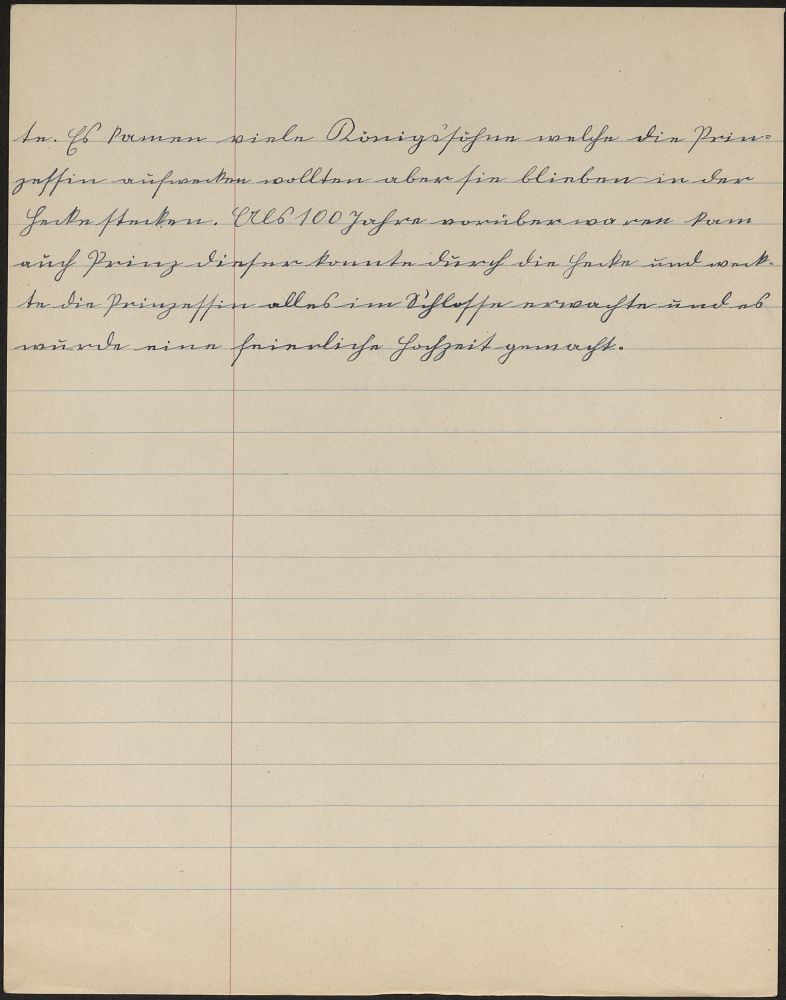 te. Es kamen viele Königssöhne welche die Prin=
zessin aufwecken wollten aber sie blieben in der
Hecke stecken. Als 100 Jahre vorüber waren kam
auch Prinz dieser konnte durch die Hecke und weck-
te die Prinzessin alles im Schlosse erwachte und es
wurde eine feierliche Hochzeit gemacht.